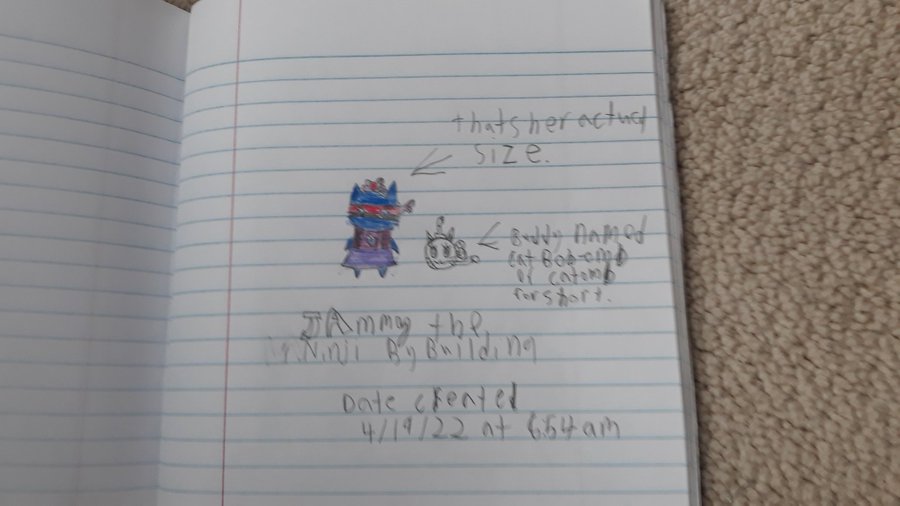 thats her actual
size.
Buddy named
cat Bob-omb
or catomb
for short.
the
Ninji By Building
Date created
4/19/22 at 6:54 am